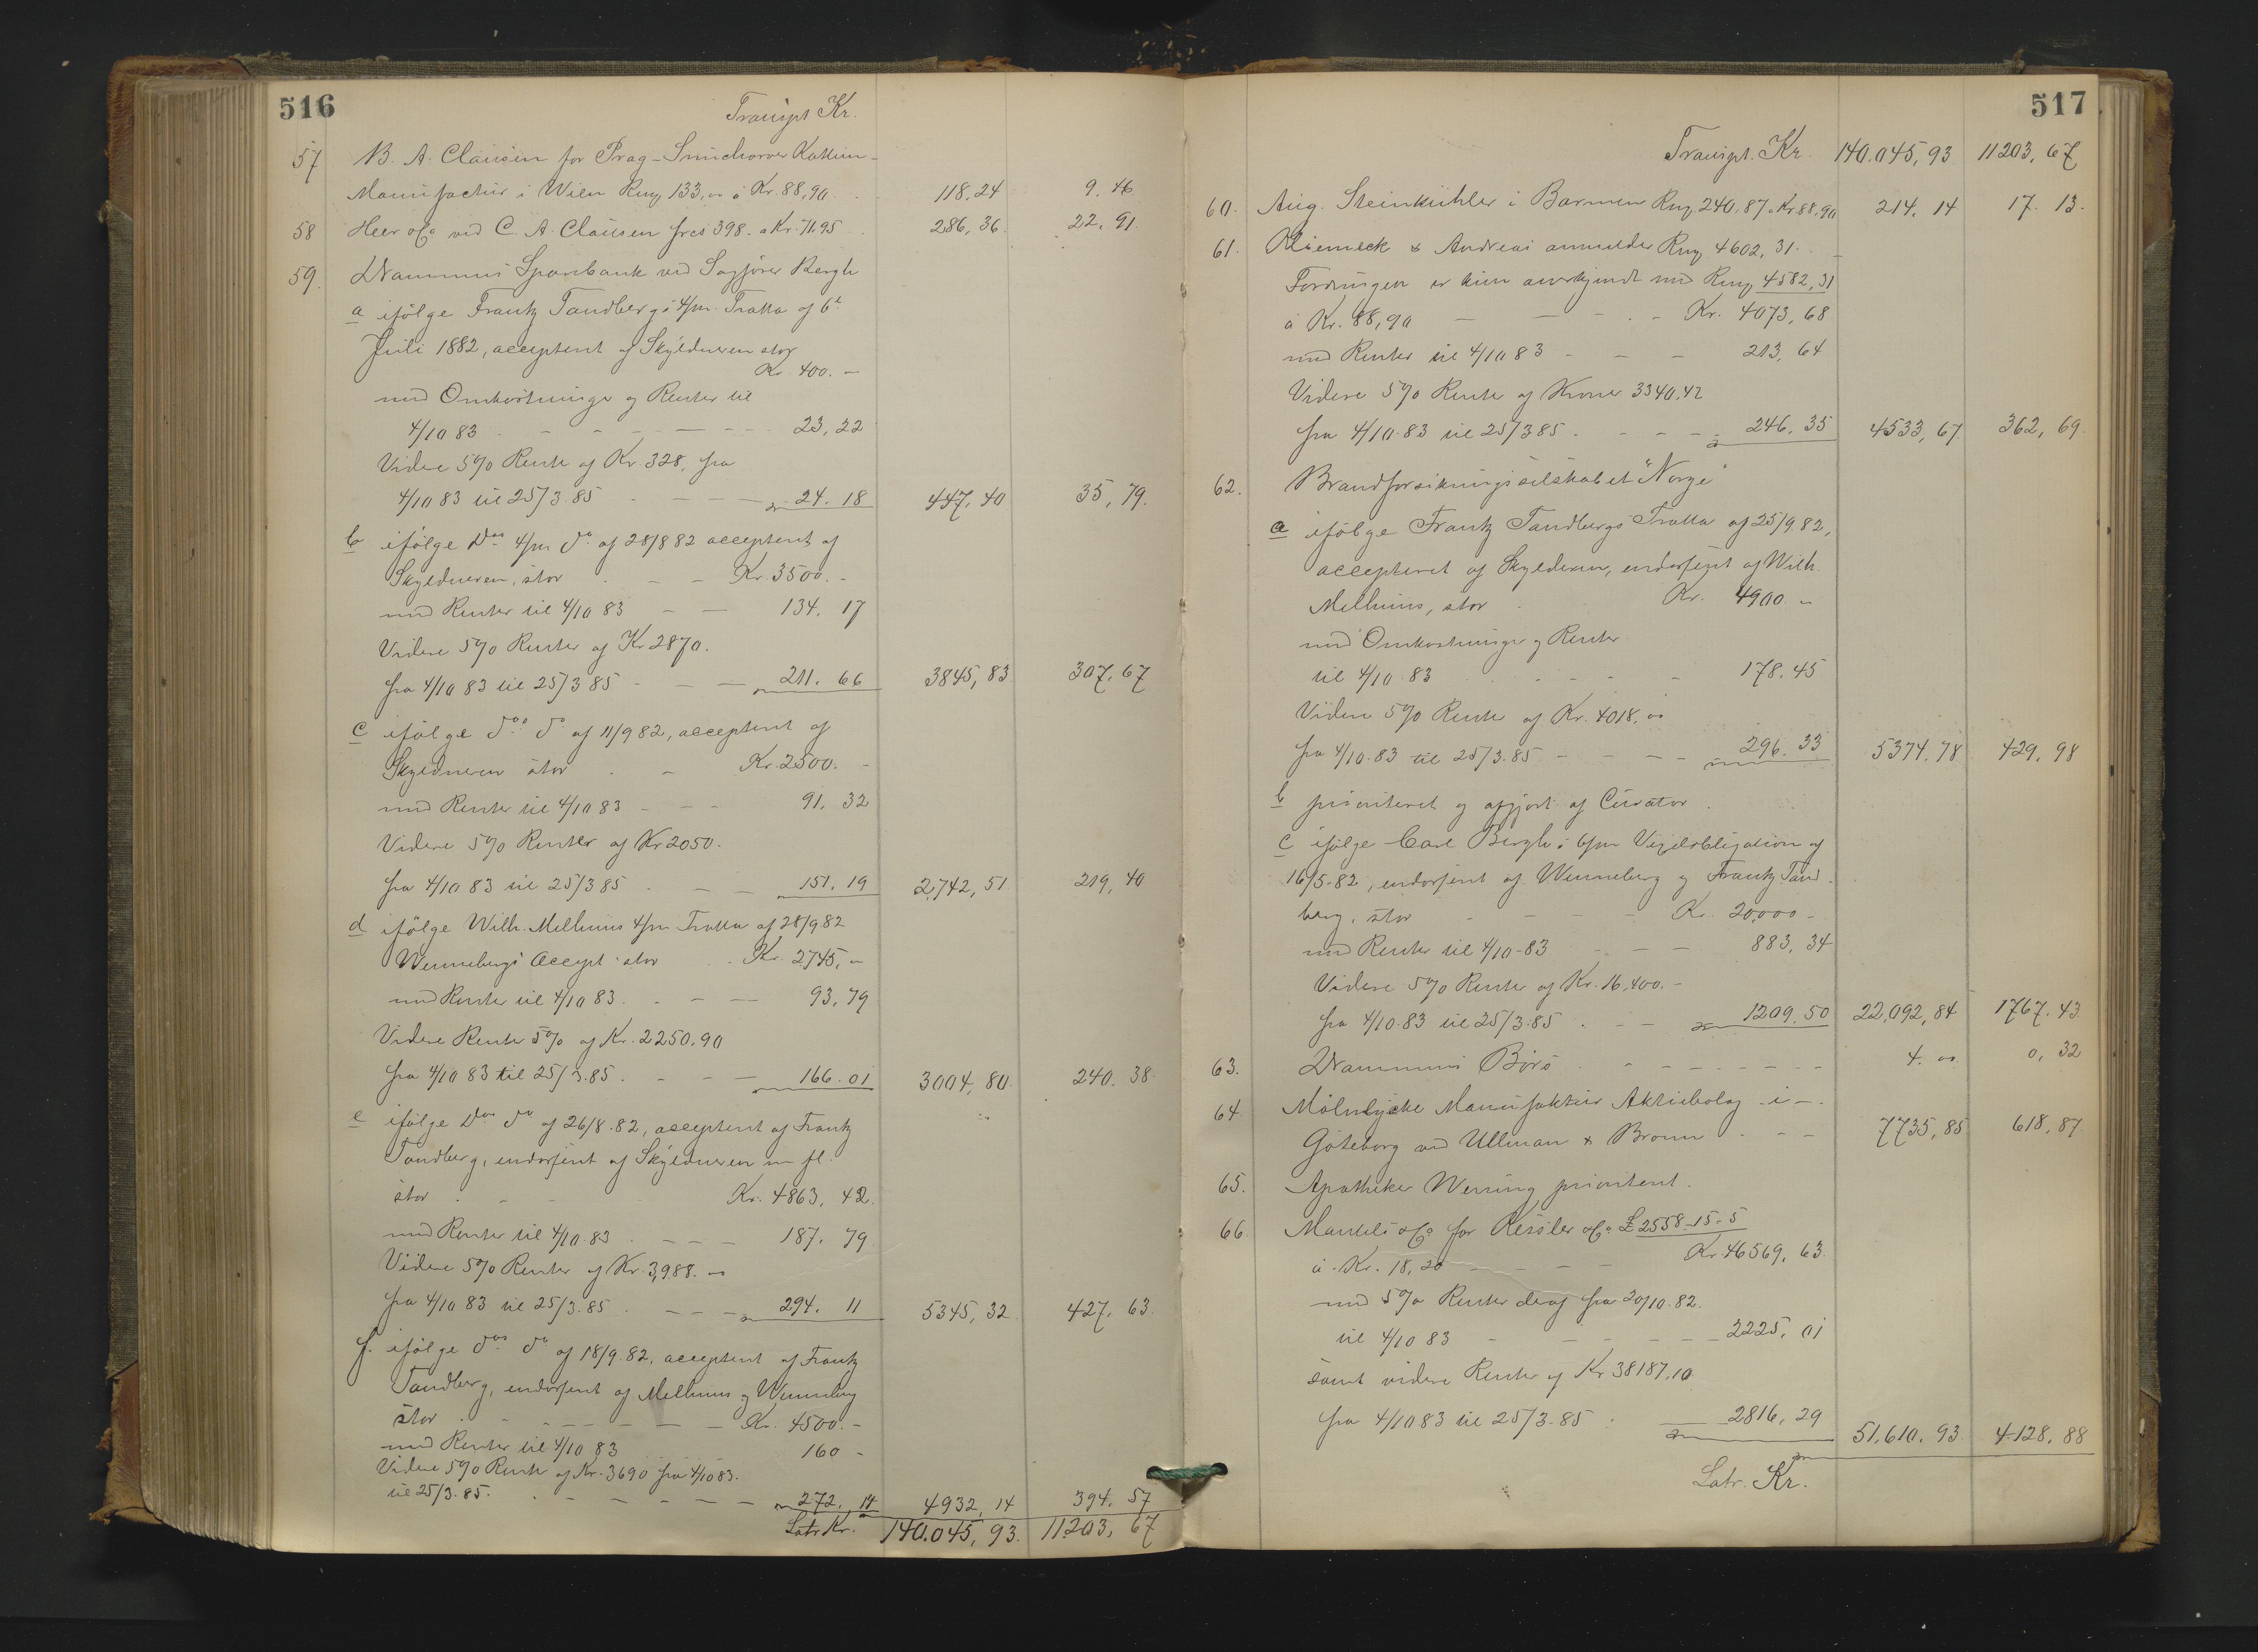 516
Transpt Kr.
57 N. A. Clausen for Prag-Smichower Kattun-
Manufactur i Wien Rmz 133,00 á Kr. 88,90 118,24 9.46
58 Heer & Co ved C. A. Clausen frcs 398. á Kr. 71.95 286,36 22,91
59. Drammens Sparebank ved Sagfører Bergh
a ifølge Frantz Tandbergs 4/m Tratta af 6t
Juli 1882, accepteret af Skyldneren stor
Kr. 400. –
med Omkostninger og Renter til
4/10 83 - - - - - 23,22
Videre 5% Rente af Kr. 328, fra
4/10 83 til 25/3 85 - - - 24.18 447.40 35,79.
b ifølge Dos 4/m do af 28/8 82 accepteret af
Skyldneren, stor - - Kr. 3500. -
med Renter til 4/10 83 - - 134.17
Videre 5% Renter af Kr 2870.
fra 4/10 83 til 25/3 85 - - - 211.66 3845,83 307,67
c ifølge dos do af 11/9 82, accepteret af
Skyldneren stor . - Kr. 2500. -
med Renter til 4/10 83 - - - 91.32
Videre 5% Renter af Kr 2050.
fra 4/10 83 til 25/3 85 - - - 151.19 2,742,51 219,40
d ifølge Wilh. Melhuus 4/m Tratta af 28/9 82
Wennebergs Accept stor . Kr. 2,745, –
med Renter til 4/10 83. - - 93,79
Videre Renter 5% af Kr. 2250.90
fra 4/10 83 til 25/3.85. - - - 166.01 3004,80 240.38.
e ifølge Dos do af 26/8.82, accepteret af Frantz
Tandberg, endosseret af Skyldneren m fl.
stor . - - Kr. 4863,42.
med Renter til 4/10.83 . - - - 187.79
Videre 5% Renter af Kr. 3,988. 00
fra 4/10 83 til 25/3.85 . - - - 294.11 5345,32 427,63.
f. ifølge dos do af 18/9.82, accepteret af Frantz
Tandberg, endosseret af Melhuus og Wenneberg
stor . - - - - - - Kr. 4500. -
med Renter til 4/10 83 160 -
Videre 5% Rente af Kr. 3690 fra 4/10 83.
til 25/3.85. . - - - - - 272.14 4932,14 394.57
Latr Kr. 140.045,93. 11203,67
517
Transpt. Kr. 140.045,93 11203,67
60. Aug. Steinkühler i Barmen Rmz. 240,87 á Kr. 88,90 214.14 17.13.
61. Kliemeck & Andreas anmelder Rmz 4602,31. –
Fordringen er kun anerkjendt med Rmz 4582,31
á Kr. 88,90 - - - Kr. 4073,68
med Renter til 4/10 83 - - - 213,64
Videre 5% Rente af Kroner 3340.42
fra 4/10.83 til 25/3 85. - - - 246.35 4533,67 362,69.
62. Brandforsikringsselskabet "Norge"
a ifølge Frantz Tandbergs Tratta af 25/9.82,
accepteret af Skylderen, endosseret af Wilh.
Melhuus, stor . Kr. 4900 –
med Omkostninger og Renter
til 4/10.83 . . - - - 178.45
Videre 5% Rente af Kr. 4018,00
fra 4/10.83 til 25/3.85 - - - - 296.33 5374.78 429,98
b prioriteret og afgjort af Curator.
c ifølge Carl Berghs 6/m Vexelobligation af
16/5.82, endosseret af Wenneberg og Frantz Tand-
berg, stor - - - - Kr. 20,000 -
med Renter til 4/10-83 - - - 883,34
Videre 5% Renter af Kr. 16,400. -
fra 4/10.83 til 25/3.85 . - - 1209.50 22,092,84 1767.43
63. Drammens Børs . - - - - - - - 4.00 0,32
64. Mölnlycke Manufaktur Aktiebolag - i -
Göteborg ved Ullman & - - - 7735,85 618,87
65. Apotheker Werring prioriteret.
66. Mankels & Co for Kessler & Co £ 2558-15-5
á Kr. 18,20 - - - Kr. 46569,63
med 5% Renter deraf fra 20/10.82.
til 4/10 83 - - - - - 2225,01
samt videre Renter af Kr 38187.10
fra 4/10 83 til 25/3-85 . 2816,29 51,610.93 4128,88
Latr. Kr.